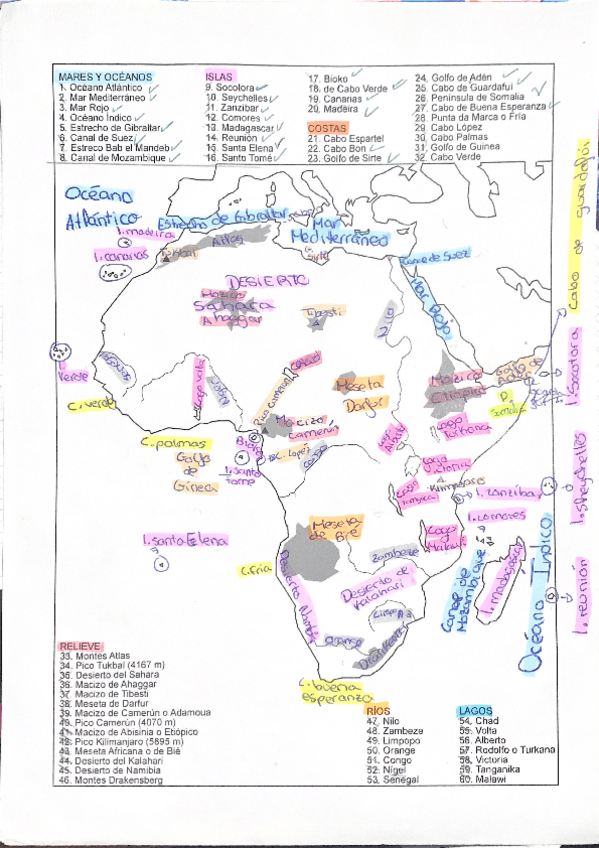 MARES Y OCÉANOS
1. Océano Atlántico
2. Mar Mediterráneo
3. Mar Rojo
4. Océano Índico
5. Estrecho de Gibraltar
6. Canal de Suez
7. Estreco Bab el Mandeb
8. Canal de Mozambique
ISLAS
9. Socotora
10. Seychelles
11. Zanzíbar
12. Comores
13. Madagascar
14. Reunión
15. Santa Elena
16. Santo Tomé
17. Bioko
18. de Cabo Verde
19. Canarias
20. Madeira
COSTAS
21. Cabo Espartel
22. Cabo Bon
23. Golfo de Sirte
24. Golfo de Adén
25. Cabo de Guardafui
26. Península de Somalia
27. Cabo de Buena Esperanza
28. Punta da Marca o Fría
29. Cabo López
30. Cabo Palmas
31. Golfo de Guinea
32. Cabo Verde
Océano
Atlántico
Estrecho de Gibraltar
Mar
Mediterráneo
I. madeira
Atlas
I. canarias
Tukbal
Sirte
Canal de Suez
Mar Rojo
DESIERTO
Sahara
Macizo
Ahaggar
Tibesti
Verde
C. verde
Chad
Pico Camerún
Meseta
Darfur
Macizo
Camerún
Macizo
Golfo de
Adén
Cabo de guardafui
I. Socotora
C. palmas
Golfo
de
Gineca
C. Lopez
Congo
I. santo
tome
Lago
Turkana
Lago
Victoria
Kilimanjaro
I. zanzibar
I. sheychelles
I. comores
I. santa Elena
Meseta
de Bié
Lago
Malawi
C. Fria
Zambeze
Desierto Namibia
Desierto de
Kalahari
Canal de
Mozambique
I. madagascar
Océano Índico
I. reunión
Limpopo
orange
C. buena
esperanza
RELIEVE
33. Montes Atlas
34. Pico Tukbal (4167 m)
35. Desierto del Sahara
36. Macizo de Ahaggar
37. Macizo de Tibesti
38. Meseta de Darfur
39. Macizo de Camerún o Adamoua
40. Pico Camerún (4070 m)
41. Macizo de Abisinia o Etiópico
42. Pico Kilimanjaro (5895 m)
43. Meseta Africana o de Bié
44. Desierto del Kalahari
45. Desierto de Namibia
46. Montes Drakensberg
RÍOS
47. Nilo
48. Zambeze
49. Limpopo
50. Orange
51. Congo
52. Nígel
53. Senegal
LAGOS
54. Chad
55. Volta
56. Alberto
57. Rodolfo o Turkana
58. Victoria
59. Tanganika
60. Malawi